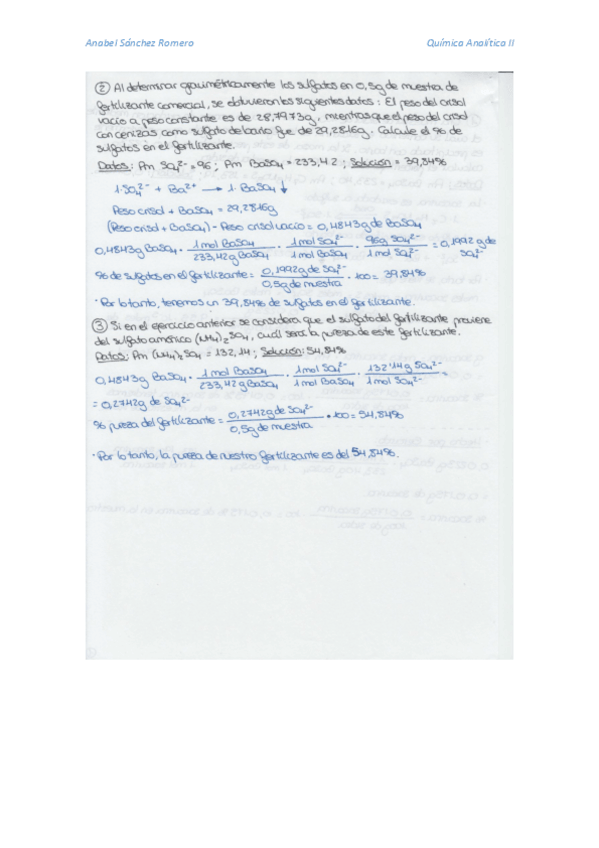 Anabel Sánchez Romero Química Analítica II
② Al determinar gravimétricamente los sulfatos en 0,5g de muestra de
fertilizante comercial, se obtuvieron los siguientes datos: El peso del crisol
vacío a peso constante es de 28,7973g, mientras que el peso del crisol
con cenizas como sulfato de bario fue de 29,2816g. Calcule el % de
sulfatos en el fertilizante.
Datos: Pm SO₄²⁻ = 96; Pm BaSO₄ = 233,42; Solución = 39,84%
1 SO₄²⁻ + Ba²⁺ → 1 BaSO₄ ↓
Peso crisol + BaSO₄ = 29,2816g
(Peso crisol + BaSO₄) - Peso crisol vacío = 0,4843g de BaSO₄
0,4843g BaSO₄ · 1 mol BaSO₄ / 233,42g BaSO₄ · 1 mol SO₄²⁻ / 1 mol BaSO₄ · 96g SO₄²⁻ / 1 mol SO₄²⁻ = 0,1992g de SO₄²⁻
% de sulfatos en el fertilizante = 0,1992g de SO₄²⁻ / 0,5g de muestra · 100 = 39,84%
· Por lo tanto, tenemos un 39,84% de sulfatos en el fertilizante.
③ Si en el ejercicio anterior se considera que el sulfato del fertilizante proviene
del sulfato amónico (NH₄)₂SO₄, cuál será la pureza de este fertilizante.
Datos: Pm (NH₄)₂SO₄ = 132,14; Solución: 54,84%
0,4843g BaSO₄ · 1 mol BaSO₄ / 233,42g BaSO₄ · 1 mol SO₄²⁻ / 1 mol BaSO₄ · 132'14g SO₄²⁻ / 1 mol SO₄²⁻ =
= 0,2742g de SO₄²⁻
% pureza del fertilizante = 0,2742g de SO₄²⁻ / 0,5g de muestra · 100 = 54,84%
· Por lo tanto, la pureza de nuestro fertilizante es del 54,84%.